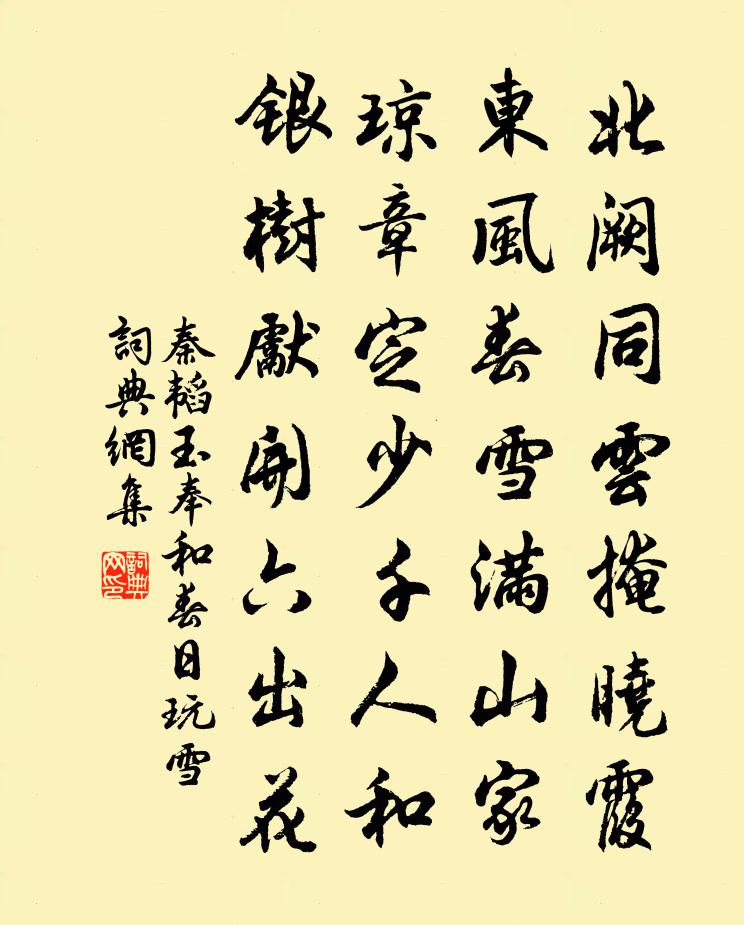 北闕同雲掩曉霞
東風春雪滿山家
瓊章定少千人和
銀樹獻開六出花
秦韜玉奉和春日玩雪
詞典網集
詞典
网印